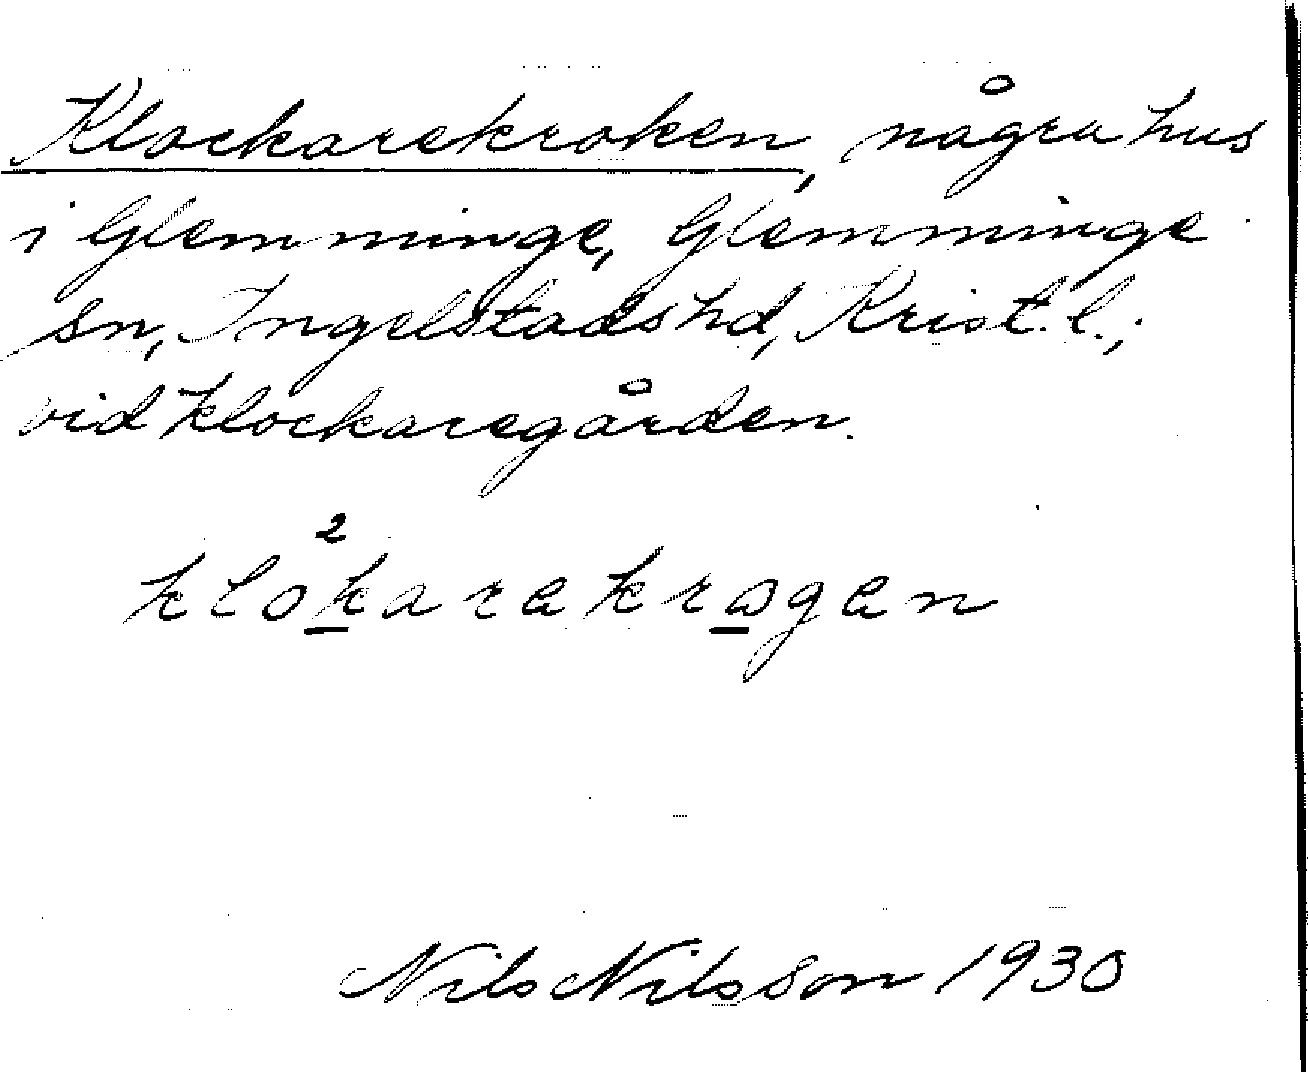 Klockarekroken, några hus
i Glemminge, Glemminge
sn, Ingelstads hd, Krist. l.;
vid klockaregården.
2
klokarekrogen
Nils Nilsson 1930